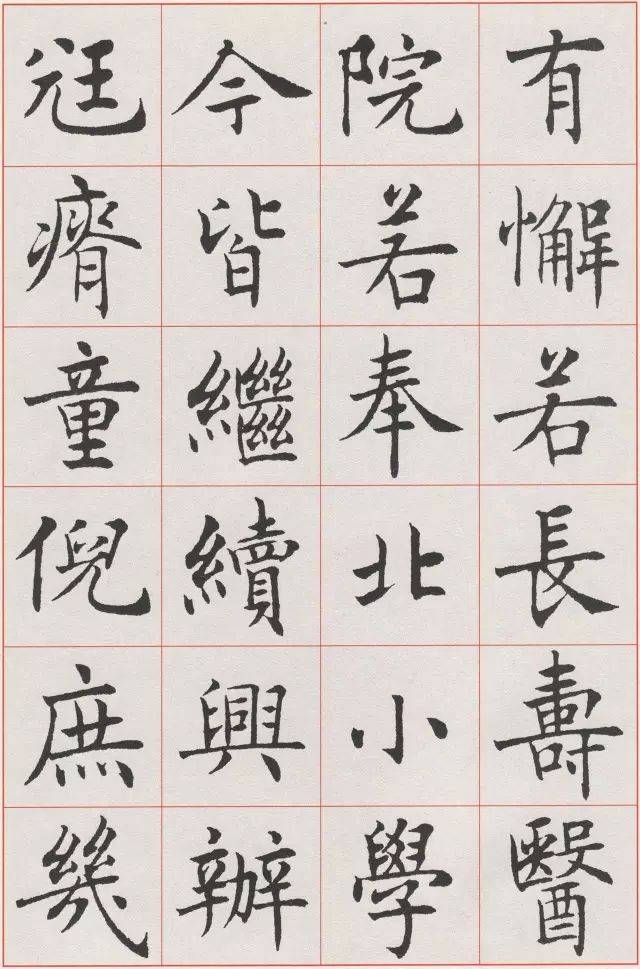 有懈若長壽醫
院若奉北小學
今皆繼續興辦
尪瘠童倪庶幾